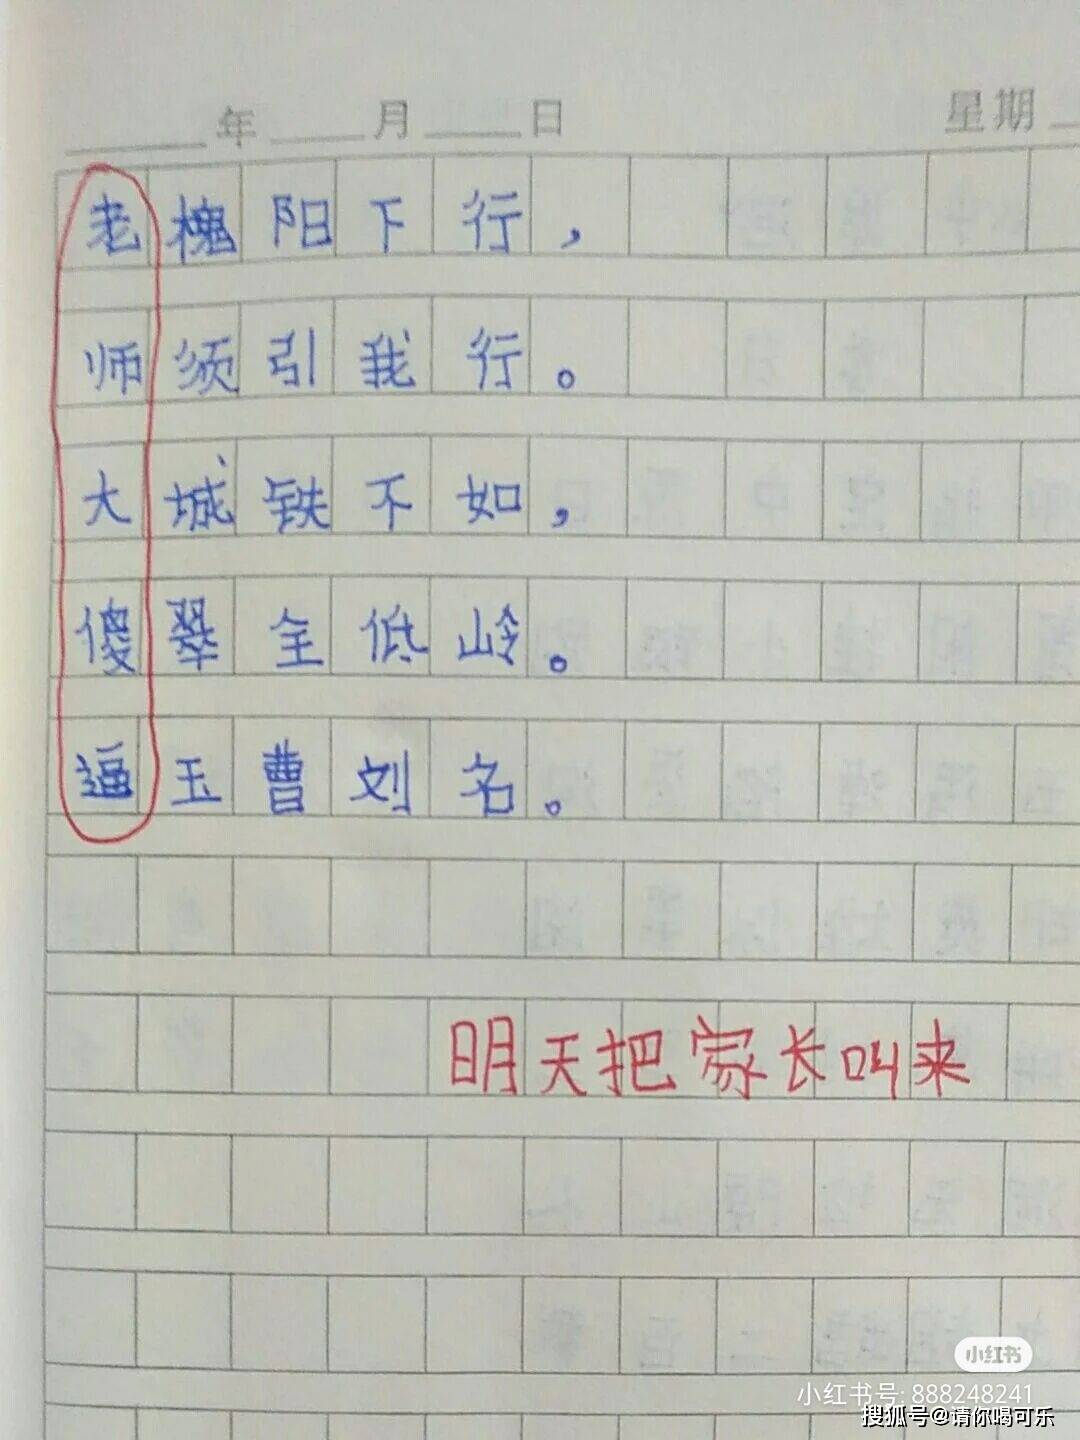 年 月 日 星期
老槐阳下行，
师须引我行。
大城铁不如，
傻翠全低岭。
逼玉曹刘名。
明天把家长叫来
小红书
小红书号: 888248241
搜狐号@请你喝可乐